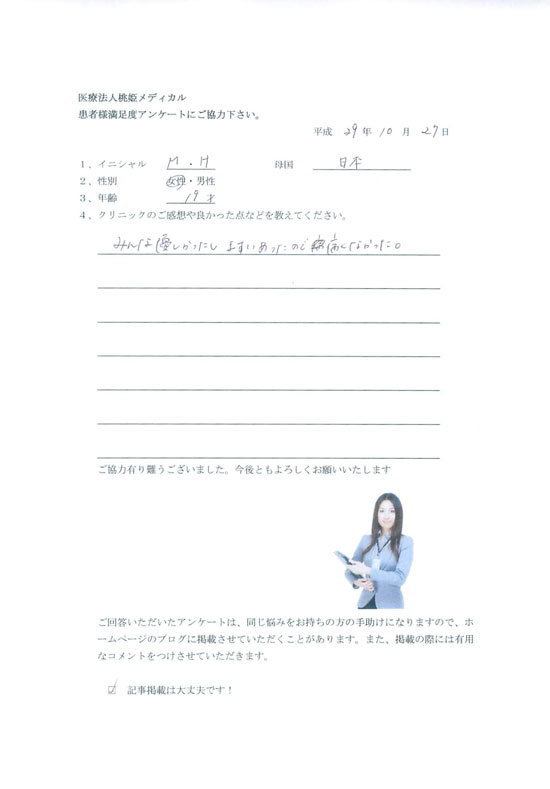 医療法人桃姫メディカル
患者様満足度アンケートにご協力下さい。
平成 29 年 10 月 27 日
1、イニシャル M．H 母国 日本
2、性別 女性・男性
3、年齢 19才
4、クリニックのご感想や良かった点などを教えてください。
みんな優しかったし ますいあったので 痛くなかった。
ご協力有り難うございました。今後ともよろしくお願いいたします
ご回答いただいたアンケートは、同じ悩みをお持ちの方の手助けになりますので、ホ
ームページのブログに掲載させていただくことがあります。また、掲載の際には有用
なコメントをつけさせていただきます。
☑ 記事掲載は大丈夫です！